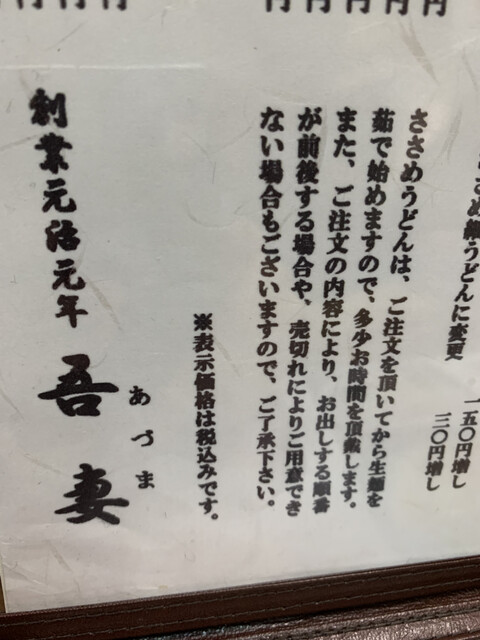 め細うどんに変更
一五〇円増し
三〇円増し
ささめうどんは、ご注文を頂いてから生麺を
茹で始めますので、多少お時間を頂戴します。
また、ご注文の内容により、お出しする順番
が前後する場合や、売切れによりご用意でき
ない場合もございますので、ご了承下さい。
※表示価格は税込みです。
創業元治元年
吾妻
あづま
円
円
円
円
円